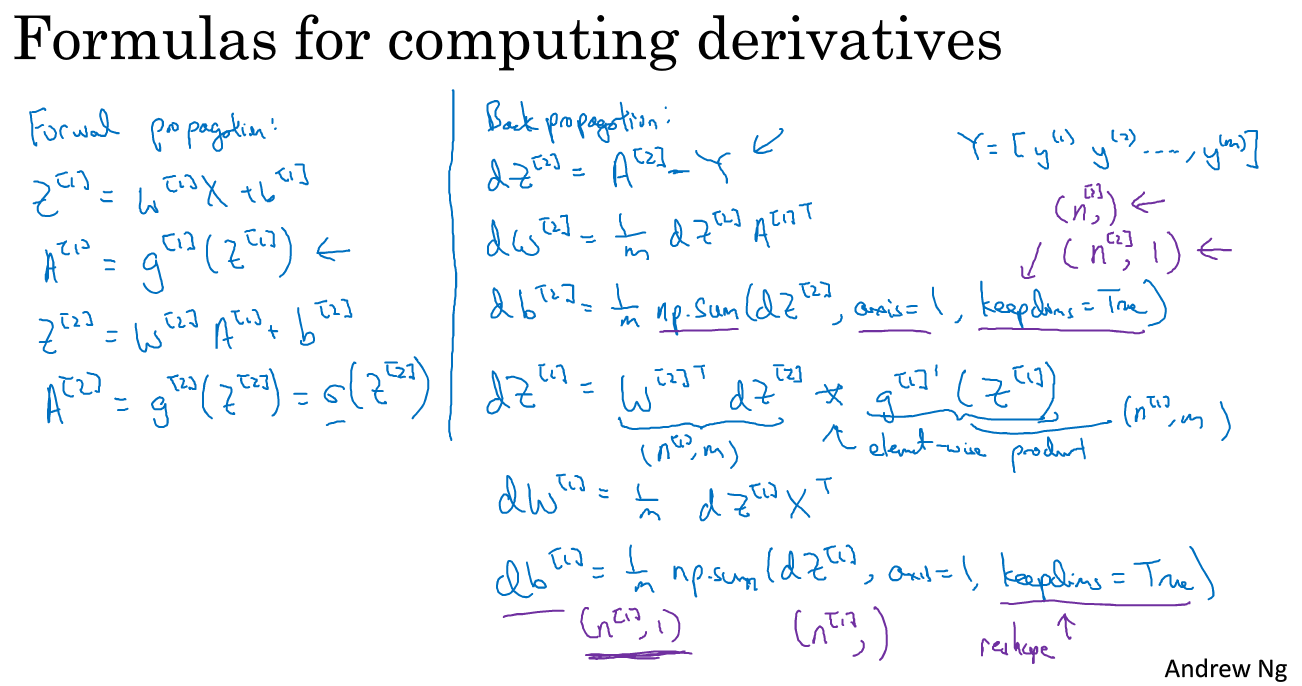 Formulas for computing derivatives
Forwal propagation:
Z^[1] = W^[1]X + b^[1]
A^[1] = g^[1](Z^[1]) ←
Z^[2] = W^[2] A^[1] + b^[2]
A^[2] = g^[2](Z^[2]) = σ(Z^[2])
Back propagation:
dZ^[2] = A^[2] - Y ↙
dW^[2] = 1/m dZ^[2] A^[1]T
db^[2] = 1/m np.sum(dZ^[2], axis=1, keepdims=True)
dZ^[1] = W^[2]T dZ^[2] * g^[1]'(Z^[1])
(n^[1], m) ↖ element-wise product (n^[1], m)
dW^[1] = 1/m dZ^[1] X^T
db^[1] = 1/m np.sum(dZ^[1], axis=1, keepdims=True)
(n^[1], 1) (n^[1],) reshape ↑
Y = [y^(1) y^(2) ...., y^(m)]
(n^[2],) ←
↙ (n^[2], 1) ←
Andrew Ng